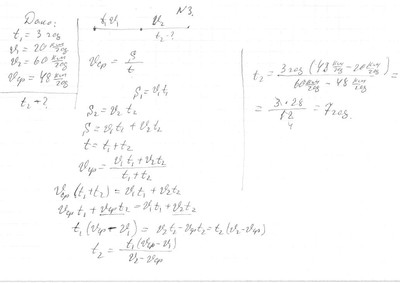 N3.
Дано:
t₁ = 3 год
v₁ = 20 км/год
v₂ = 60 км/год
vср = 48 км/год
t₂ - ?
t₁ v₁ v₂
t₂ - ?
vср = S/t
S₁ = v₁t₁
S₂ = v₂t₂
S = v₁t₁ + v₂t₂
t = t₁ + t₂
vср = (v₁t₁ + v₂t₂)/(t₁ + t₂)
vср(t₁ + t₂) = v₁t₁ + v₂t₂
vср t₁ + vср t₂ = v₁t₁ + v₂t₂
t₁(vср - v₁) = v₂t₂ - vср t₂ = t₂(v₂ - vср)
t₂ = t₁(vср - v₁)/(v₂ - vср)
t₂ = 3 год (48 км/год - 20 км/год)/(60 км/год - 48 км/год) =
= 3 · 28/12 = 7 год.
4